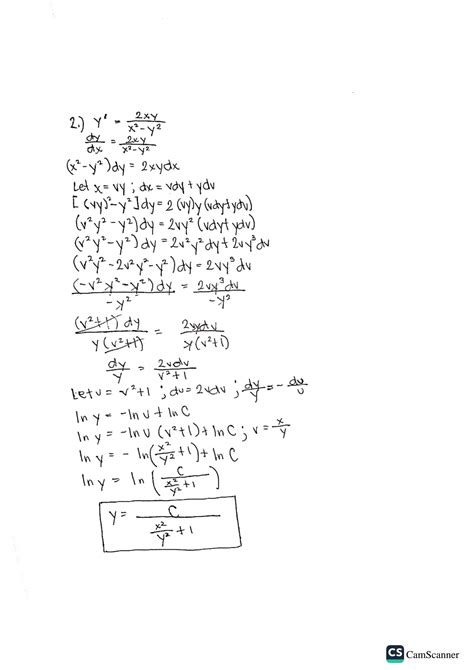 2.) y' = 2xy / x² - y²
dy/dx = 2xy / x² - y²
(x² - y²)dy = 2xydx
Let x = vy ; dx = vdy + ydv
[(vy)² - y²]dy = 2(vy)y(vdy+ydv)
(v²y² - y²)dy = 2vy²(vdy+ydv)
(v²y² - y²)dy = 2v²y²dy + 2vy³dv
(v²y² - 2v²y² - y²)dy = 2vy³dv
(-v²y² - y²)dy / -y² = 2vy³dv / -y²
(v²+1)dy / y(v²+1) = 2vydv / y(v²+1)
dy/y = 2vdv / v²+1
Let u = v²+1 ; du = 2vdv ; dy/y = - du/u
ln y = -ln u + ln C
ln y = -ln u (v²+1) + ln C ; v = x/y
ln y = - ln(x²/y² + 1) + ln C
ln y = ln (C / x²/y² + 1)
y = C / x²/y² + 1
CS CamScanner